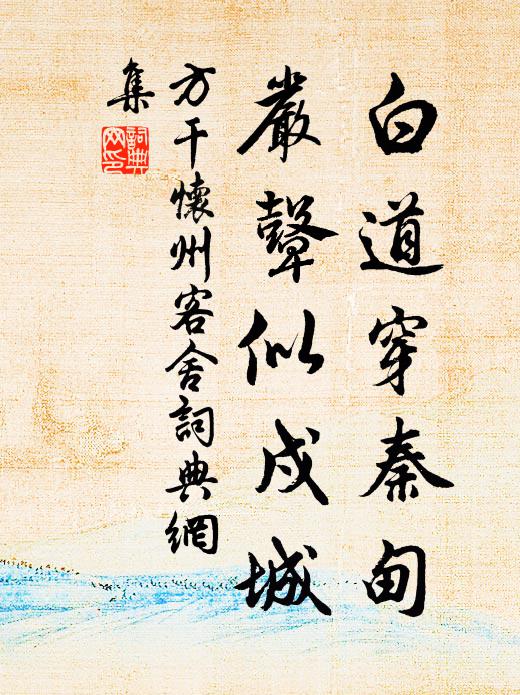 白道穿秦甸
嚴鼙似戍城
方干懷州客舍詞典網
集
詞典網印